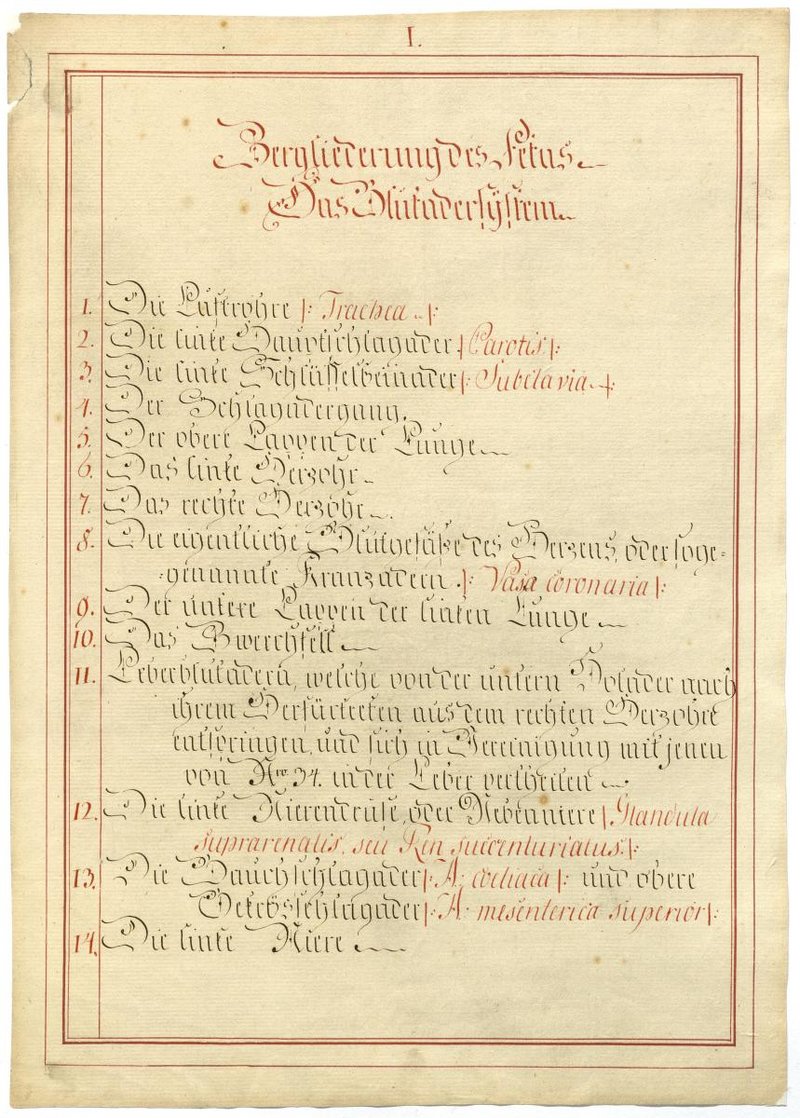 I.
Zergliederung des Fetus.
Das Blutadersÿstem.
1. Die Luftrohre |: Trachea. :|
2. Die linke Hauptschlagader |: Carotis. :|
3. Die linke Schlüsselbeinader |: Subclavia. :|
4. Der Schlagadergang.
5. Der obere Lappen der Lunge.
6. Das linke Herzohr.
7. Das rechte Herzohr.
8. Die eigentliche Blutgefäße des Herzens, oder soge=
=genannte Kranzadern. |: Vasa coronaria :|
9. Der untere Lappen der linken Lunge.
10. Das Zwerchfell.
11. Leberblutadern, welche von der untern Holader nach
ihrem Herfürtreten aus dem rechten Herzohre
entspringen, und sich in Vereinigung mit jenen
von Nro 34. in der Leber vertheilen.
12. Die linke Nierendrüse, oder Nebenniere |: Glandula
suprarenalis, seu Ren succenturiatus. :|
13. Die Bauchschlagader |: A. coeliaca :| und obere
Gekrösschlagader |: A. mesenterica superior :|
14. Die linke Niere.